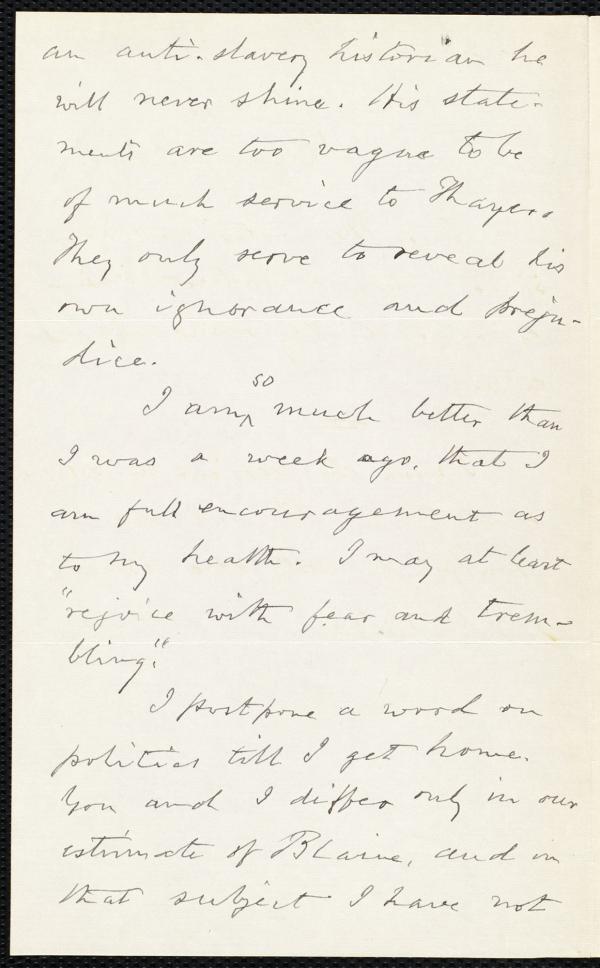 an anti-slavery historian he
will never shine. His state-
ments are too vague to be
of much service to Thayer.
They only serve to reveal his
own ignorance and preju-
dice.
so
I am^ much better than
I was a week ago, that I
am full encouragement as
to my health. I may at least
"rejoice with fear and trem-
bling."
I postpone a word on
politics till I get home.
You and I differ only in our
estimate of Blaine, and on
that subject I have not